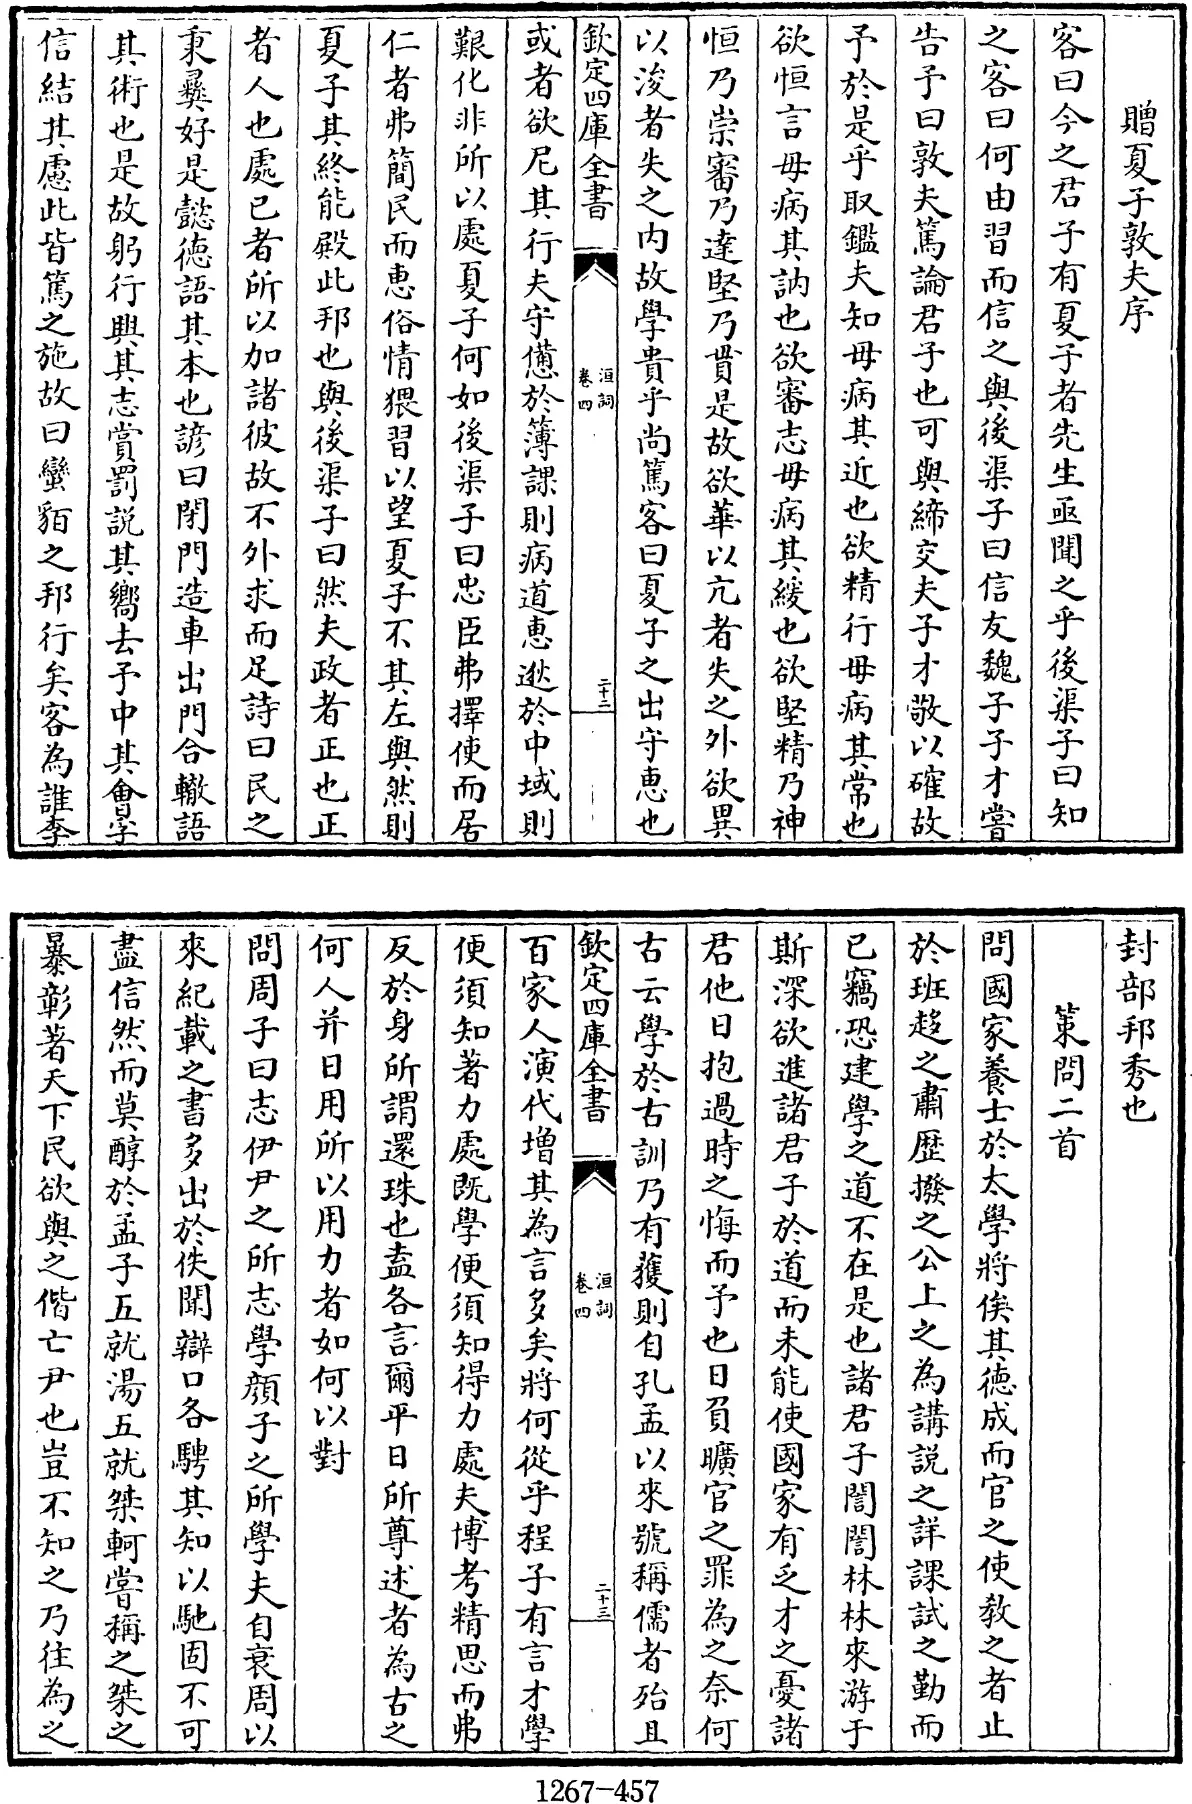 贈夏子敦夫序
客曰今之君子有夏子者先生亟聞之乎後渠子曰知
之客曰何由習而信之與後渠子曰信友魏子子才嘗
告予曰敦夫篤論君子也可與締交夫子才敬以確故
予於是乎取鑑夫知毋病其近也欲精行毋病其常也
欲恒言毋病其訥也欲審志毋病其緩也欲堅精乃神
恒乃崇審乃達堅乃貫是故欲華以亢者失之外欲異
以浚者失之内故學貴乎尚篤客曰夏子之出守惠也
欽定四庫全書
洹詞
卷四
二十二
或者欲尼其行夫守憊於簿課則病道惠逖於中域則
艱化非所以處夏子何如後渠子曰忠臣弗擇使而居
仁者弗簡民而惠俗情猥習以望夏子不其左與然則
夏子其終能殿此邦也與後渠子曰然夫政者正也正
者人也處已者所以加諸彼故不外求而足詩曰民之
秉彞好是懿德語其本也諺曰閉門造車出門合轍語
其術也是故躬行興其志賞罰説其嚮去予中其會孚
信結其慮此皆篤之施故曰蠻貊之邦行矣客為誰李
封部邦秀也
策問二首
問國家養士於太學將俟其德成而官之使教之者止
於班趍之肅歴撥之公上之為講説之詳課試之勤而
已竊恐建學之道不在是也諸君子誾誾林林來游于
斯深欲進諸君子於道而未能使國家有乏才之憂諸
君他日抱過時之悔而予也日負曠官之罪為之奈何
古云學於古訓乃有獲則自孔孟以來號稱儒者殆且
欽定四庫全書
洹詞
卷四
二十三
百家人演代增其為言多矣將何從乎程子有言才學
便須知著力處既學便須知得力處夫博考精思而弗
反於身所謂還珠也盍各言爾平日所尊述者為古之
何人并日用所以用力者如何以對
問周子曰志伊尹之所志學顔子之所學夫自衰周以
來紀載之書多出於佚聞辯口各騁其知以馳固不可
盡信然而莫醇於孟子五就湯五就桀軻嘗稱之桀之
暴彰著天下民欲與之偕亡尹也豈不知之乃往為之
1267-457